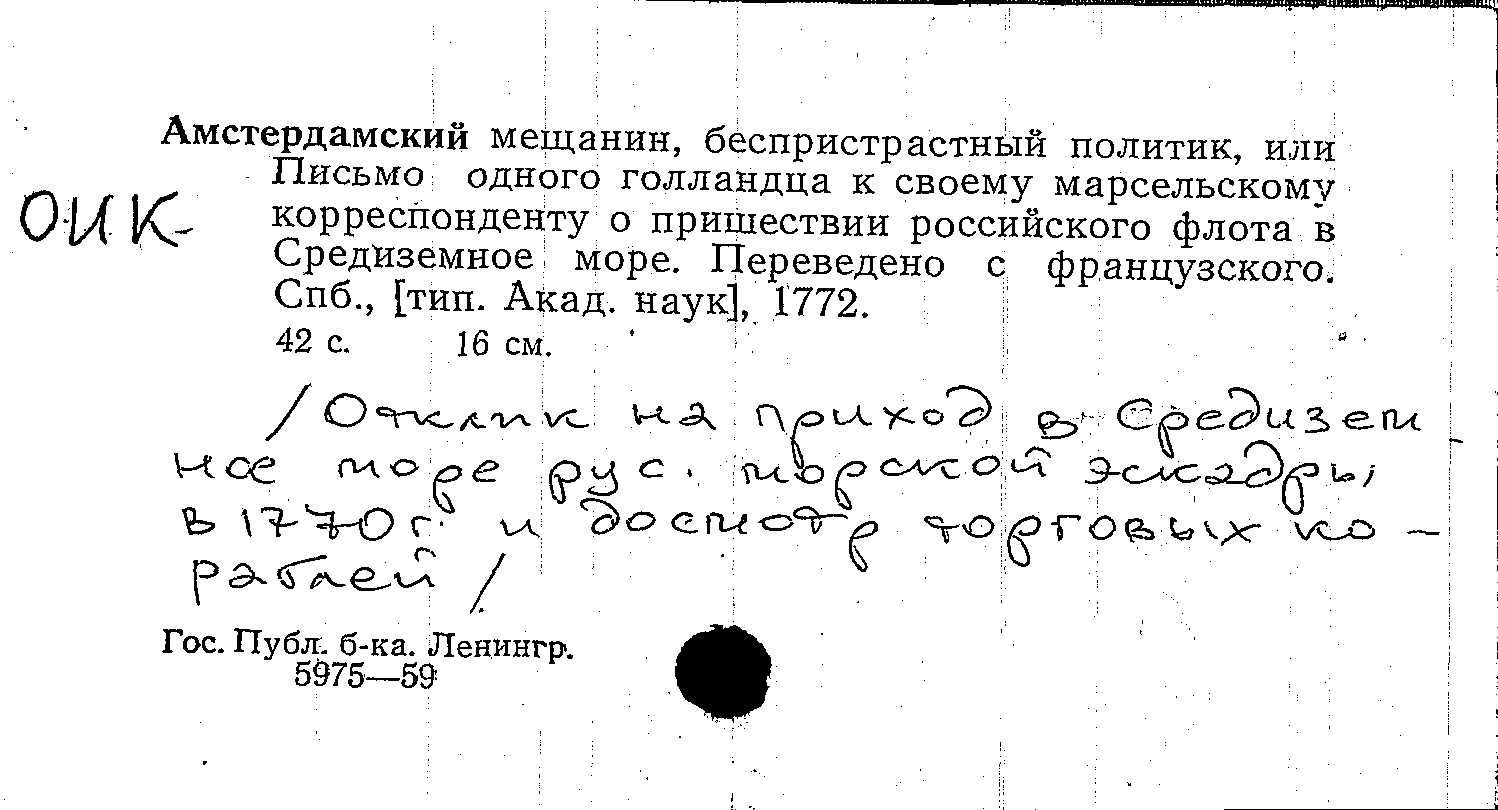 Амстердамский мещанин, беспристрастный политик, или
Письмо одного голландца к своему марсельскому
ОИК
корреспонденту о пришествии российского флота в
Средиземное море. Переведено с французского.
Спб., [тип. Акад. наук], 1772.
42 с. 16 см.
/Отклик на приход в Средизем
ное море рус. морской эскадры
в 1770 г. и досмотр торговых ко-
раблей/
Гос. Публ. б-ка. Ленингр.
5975—59